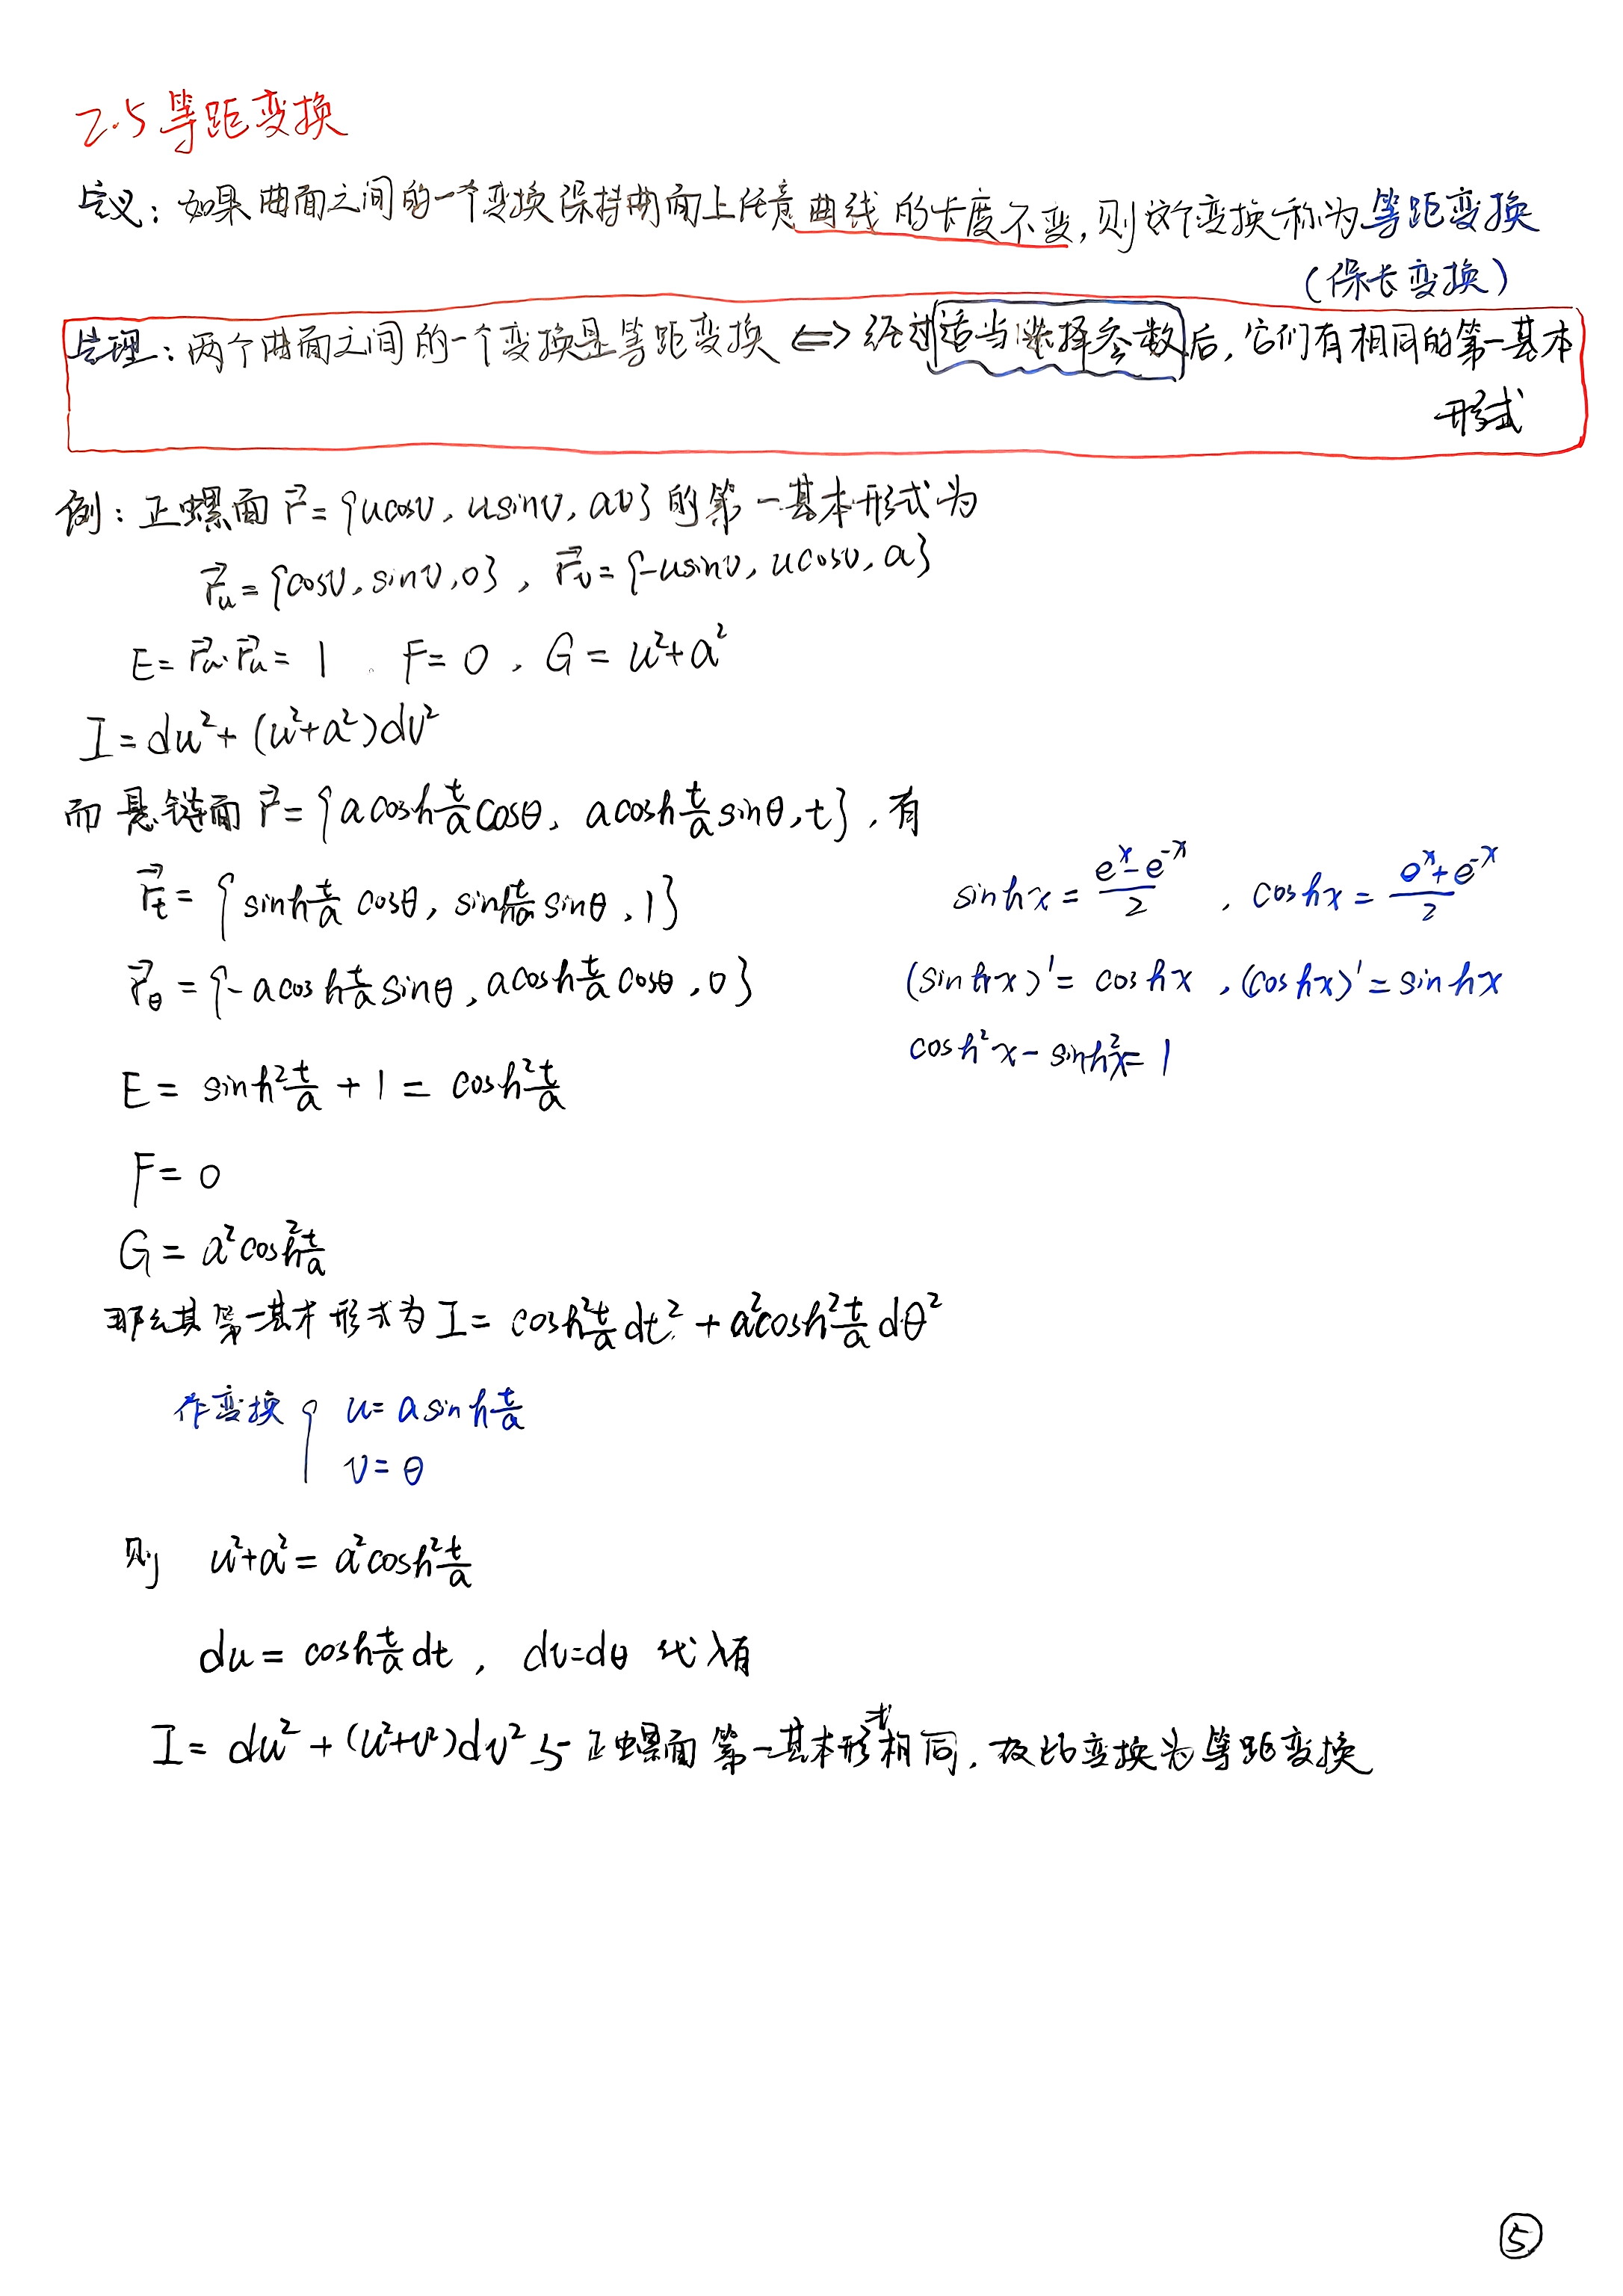 2.5 等距变换
定义：如果曲面之间的一个变换保持曲面上任意曲线的长度不变，则这个变换称为等距变换
（保长变换）
定理：两个曲面之间的一个变换是等距变换 ⟺ 经过适当选择参数后，它们有相同的第一基本
形式
例：正螺面 r⃗={ucosv, usinv, av} 的第一基本形式为
r⃗ᵤ={cosv, sinv, 0}，r⃗ᵥ={-usinv, ucosv, a}
E=r⃗ᵤ·r⃗ᵤ=1，F=0，G=u²+a²
I=du²+(u²+a²)dv²
而悬链面 r⃗={acosh t/a cosθ, acosh t/a sinθ, t}，有
r⃗_t={sinh t/a cosθ, sinh t/a sinθ, 1}
sinhx=(eˣ-e⁻ˣ)/2，coshx=(eˣ+e⁻ˣ)/2
r⃗_θ={-acosh t/a sinθ, acosh t/a cosθ, 0}
(sinhx)'=coshx，(coshx)'=sinhx
cosh²x-sinh²x=1
E=sinh² t/a+1=cosh² t/a
F=0
G=a²cosh² t/a
那么其第一基本形式为 I=cosh² t/a dt²+a²cosh² t/a dθ²
作变换{ u=asinh t/a
v=θ
则 u²+a²=a²cosh² t/a
du=cosh t/a dt，dv=dθ 代入有
I=du²+(u²+v²)dv² 与正螺面第一基本形式相同，故此变换为等距变换
⑤